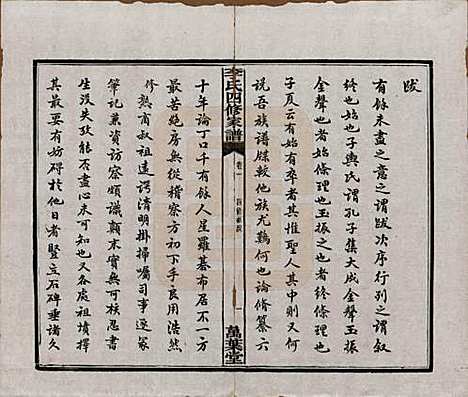 跋
有餘未盡之意之謂跋次序行列之謂叙
終始也始子輿氏謂孔子集大成金聲玉振
金聲也者始條理也玉振之也者終條理也
子夏云有始有卒者其惟聖人其中則又何
說吾族譜牒較他族尤難何也論脩纂六
李氏四修家譜
卷一
萬葉堂
十年論丁口千有餘人星羅碁布居不一方
最苦絕房無從稽察方初下手良用浩然
修熟商叔祖遠諤清明掛掃囑司事逐家
筆記兼資訪察頗識顛末實無可核忍書
生没失攷能否盡心未可知也又各處祖墳擇
其最有妨碍者於他日豎立石碑垂諸久